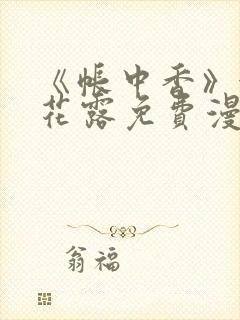 《帐中香》
花露免费漫
翁福